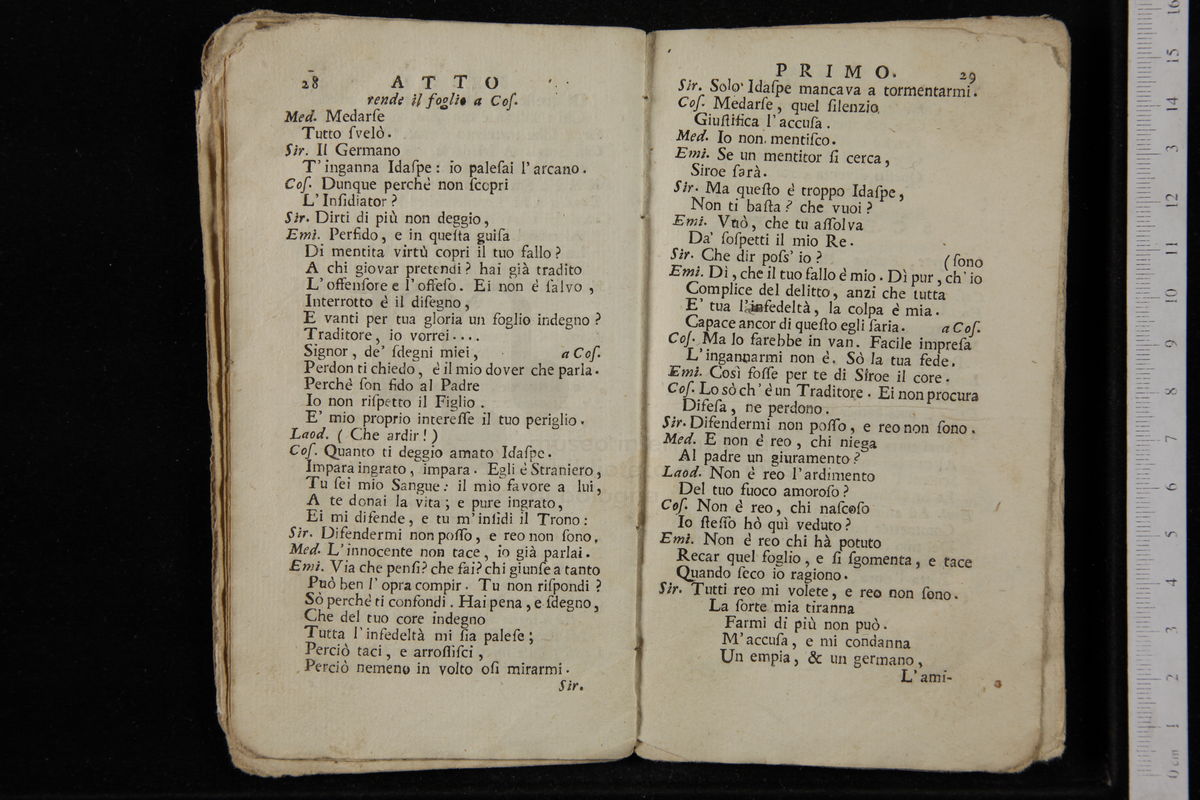 28 ATTO
rende il foglio a Coſ.
Med. Medarſe
Tutto ſvelò.
Sir. Il Germano
T' inganna Idaſpe: io paleſai l' arcano.
Coſ. Dunque perchè non ſcopri
L' Inſidiator?
Sir. Dirti di più non deggio,
Emi. Perfido, e in queſta guiſa
Di mentita virtù copri il tuo fallo?
A chi giovar pretendi? hai già tradito
L' offenſore e l' offeſo. Ei non è ſalvo,
Interrotto è il diſegno,
E vanti per tua gloria un foglio indegno?
Traditore, io vorrei....
Signor, de' ſdegni miei, a Coſ.
Perdon ti chiedo, è il mio dover che parla.
Perchè ſon fido al Padre
Io non riſpetto il Figlio.
E' mio proprio intereſſe il tuo periglio.
Laod. ( Che ardir! )
Coſ. Quanto ti deggio amato Idaſpe.
Impara ingrato, impara. Egli è Straniero,
Tu ſei mio Sangue: il mio favore a lui,
A te donai la vita; e pure ingrato,
Ei mi difende, e tu m' inſidi il Trono:
Sir. Difendermi non poſſo, e reo non ſono.
Med. L' innocente non tace, io già parlai.
Emi. Via che penſi? che fai? chi giunſe a tanto
Può ben l' opra compir. Tu non riſpondi?
Sò perchè ti confondi. Hai pena, e ſdegno,
Che del tuo core indegno
Tutta l' infedeltà mi ſia paleſe;
Perciò taci, e arroſſiſci,
Perciò nemeno in volto oſi mirarmi.
Sir.
PRIMO. 29
Sir. Solo Idaſpe mancava a tormentarmi.
Coſ. Medarſe, quel ſilenzio
Giuſtifica l' accuſa.
Med. Io non mentiſco.
Emi. Se un mentitor ſi cerca,
Siroe ſarà.
Sir. Ma queſto è troppo Idaſpe,
Non ti baſta? che vuoi?
Emi. Vuò, che tu aſſolva
Da' ſoſpetti il mio Re.
Sir. Che dir poſs' io? (ſono
Emi. Di, che il tuo fallo è mio. Dì pur, ch' io
Complice del delitto, anzi che tutta
E' tua l' infedeltà, la colpa è mia.
Capace ancor di queſto egli ſaria. a Coſ.
Coſ. Ma lo ſarebbe in van. Facile impreſa
L' ingannarmi non è. Sò la tua fede.
Emi. Così foſſe per te di Siroe il core.
Coſ. Lo sò ch' è un Traditore. Ei non procura
Difeſa, ne perdono.
Sir. Difendermi non poſſo, e reo non ſono.
Med. E non è reo, chi niega
Al padre un giuramento?
Laod. Non è reo l' ardimento
Del tuo fuoco amoroſo?
Coſ. Non è reo, chi naſcoſo
Io ſteſſo hò quì veduto?
Emi. Non è reo chi hà potuto
Recar quel foglio, e ſi ſgomenta, e tace
Quando ſeco io ragiono.
Sir. Tutti reo mi volete, e reo non ſono.
La ſorte mia tiranna
Farmi di più non può.
M' accuſa, e mi condanna
Un empia, & un germano,
L' ami-
0 cm 1 2 3 4 5 6 7 8 9 10 11 12 13 14 15 16